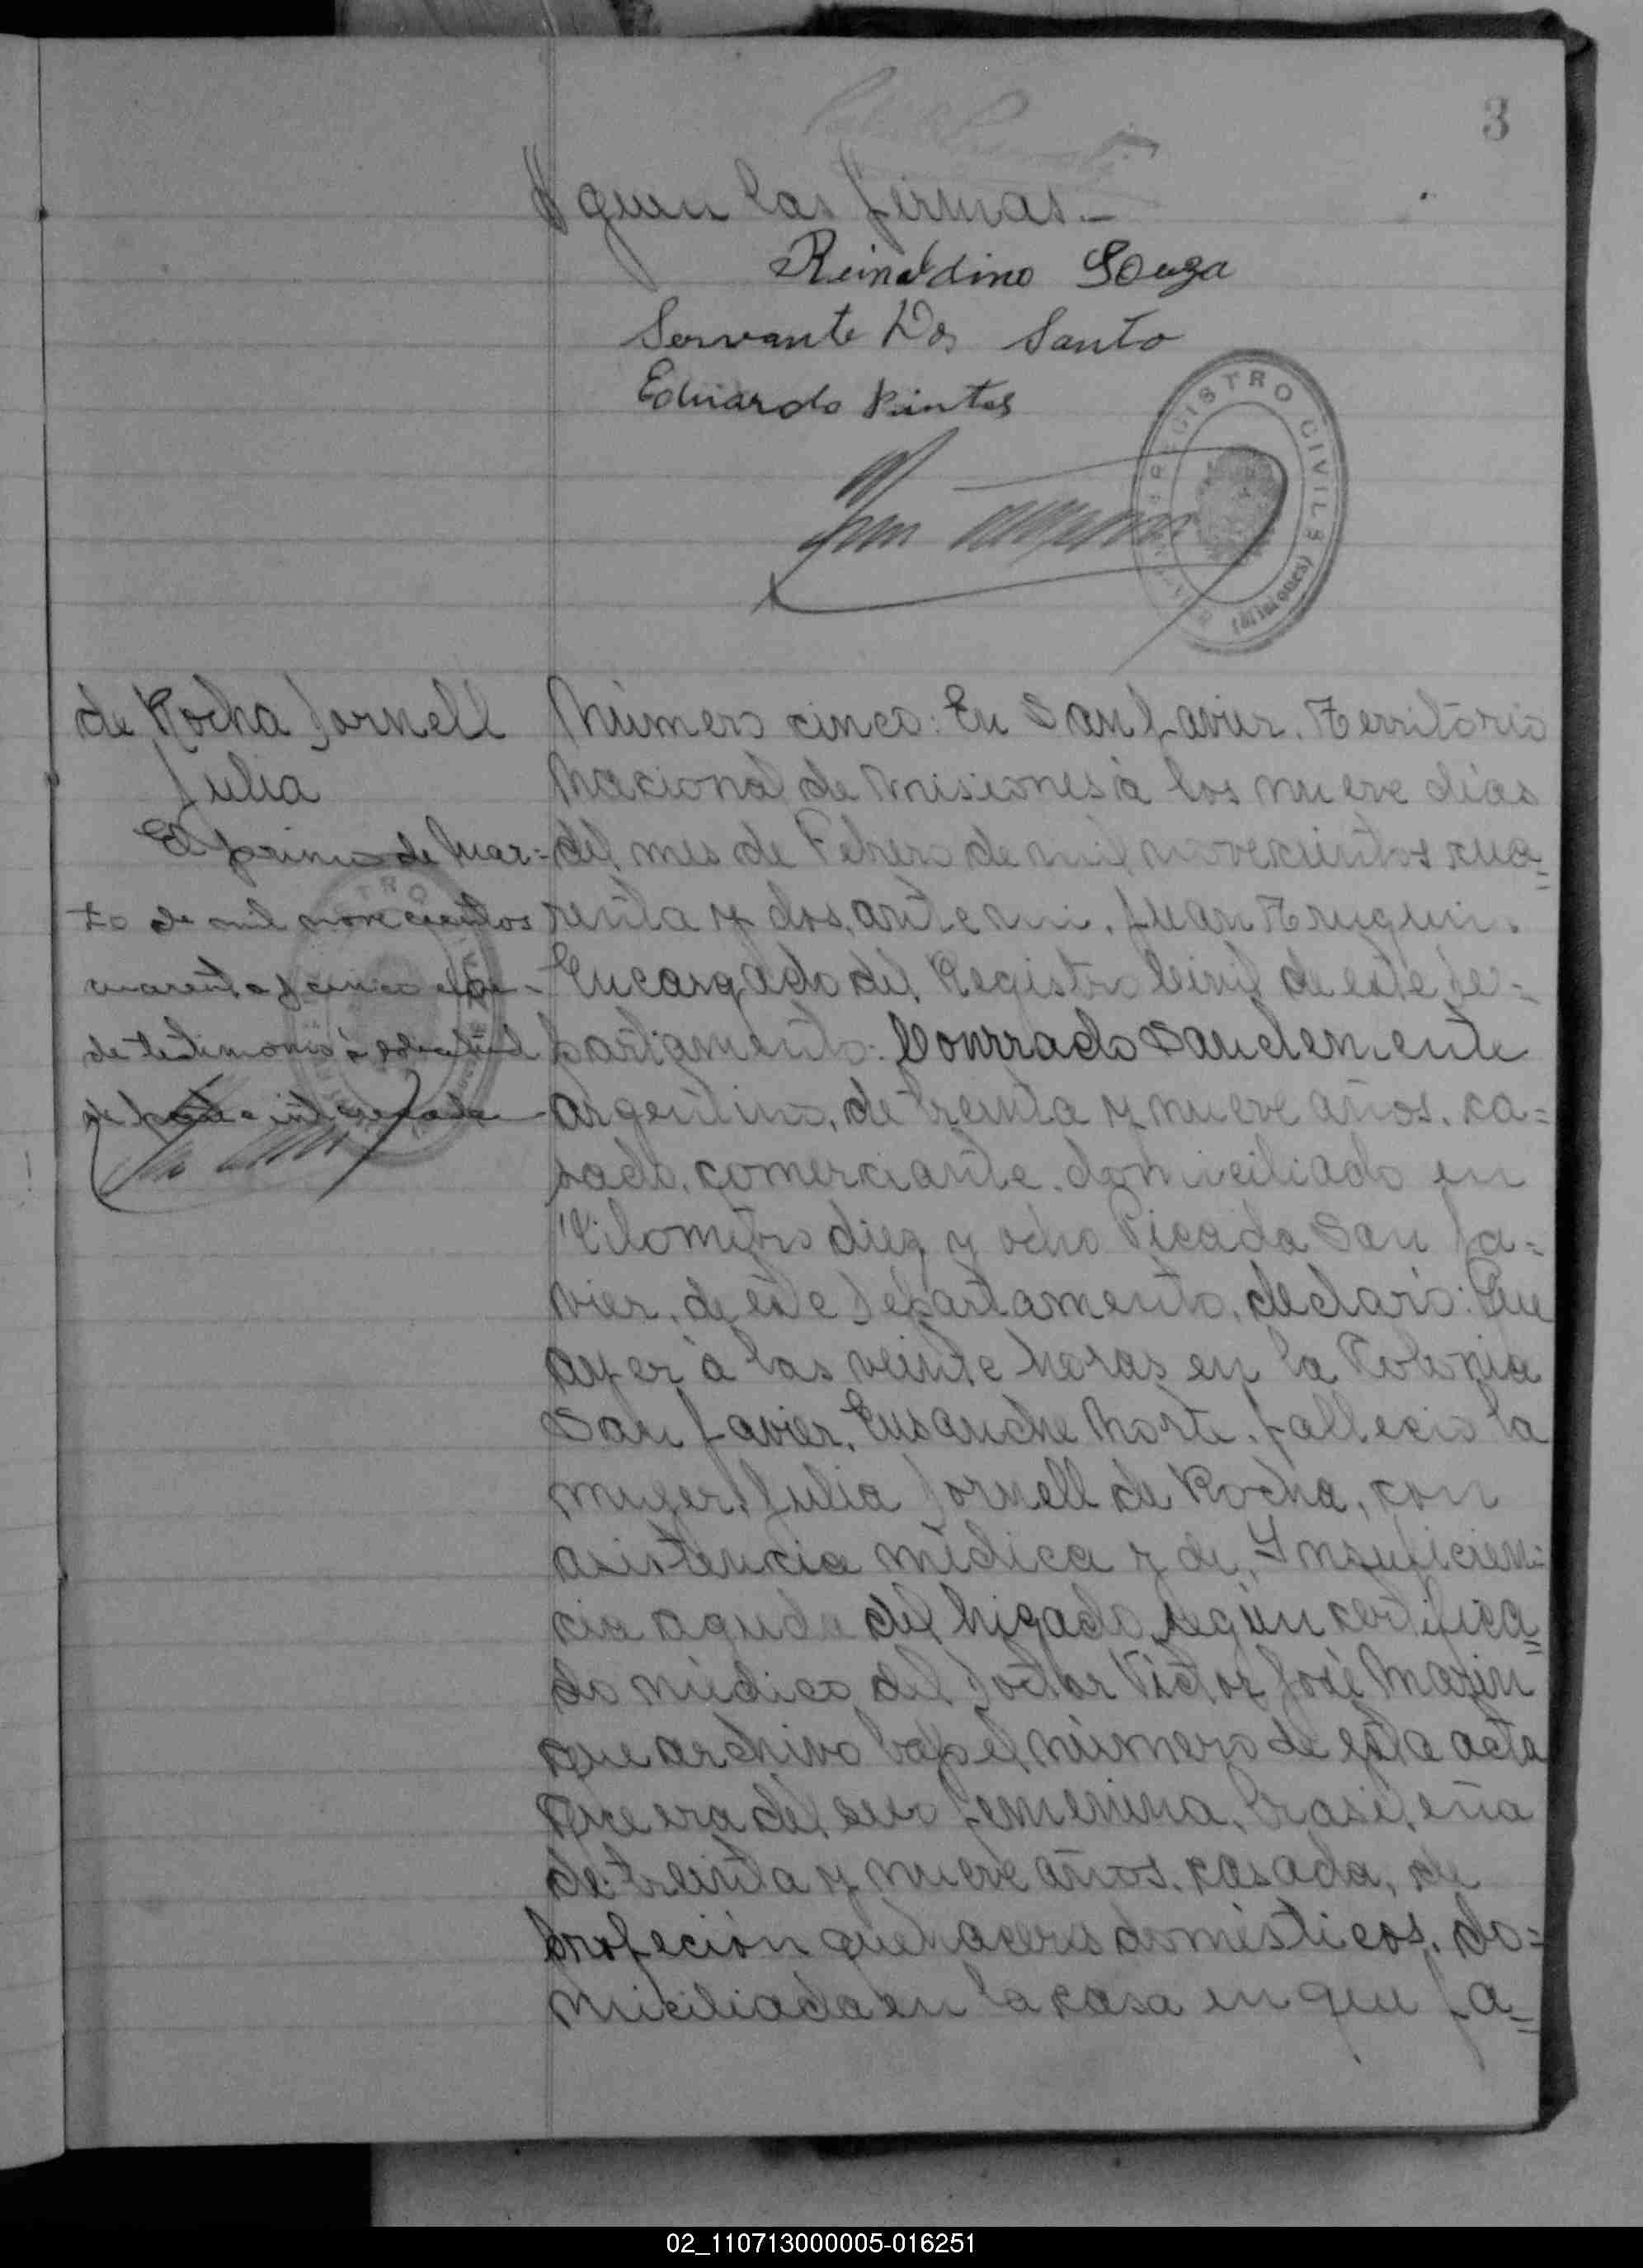 3
Siguen las firmas.-
Reinaldino Souza
Servante Dos Santo
Eduardo Pintos
REGISTRO CIVIL
(Misiones)
de Rocha Dornell
Julia
El primero de Mar=
zo de mil novecientos
cuarenta y cinco expe-
dí testimonio á solicitud
de parte interesada
Número cinco: En San Javier, Territorio
Nacional de Misiones á los nueve días
del mes de Febrero de mil novecientos cua=
renta y dos, ante mi, Juan
Encargado del Registro Civil de este De=
partamento: Conrrado Sandemente
argentino, de treinta y nueve años, ca=
sado, comerciante, domiciliado en
Kilometro diez y ocho Picada San Ja=
vier, de este Departamento, declaró: Que
ayer á las veinte horas en la Colonia
San Javier, Ensanche Norte, falleció la
mujer: Julia Dornell de Rocha, con
asistencia médica y de, Insuficien=
cia aguda del higado, según certifica=
do médico del Doctor Victor José Marin
que archivo bajo el número de esta acta
Que era del sexo femenina, brasileña
de treinta y nueve años, casada, de
profeción quehaceres domésticos, do=
miciliada en la casa en que fa=
02_110713000005-016251